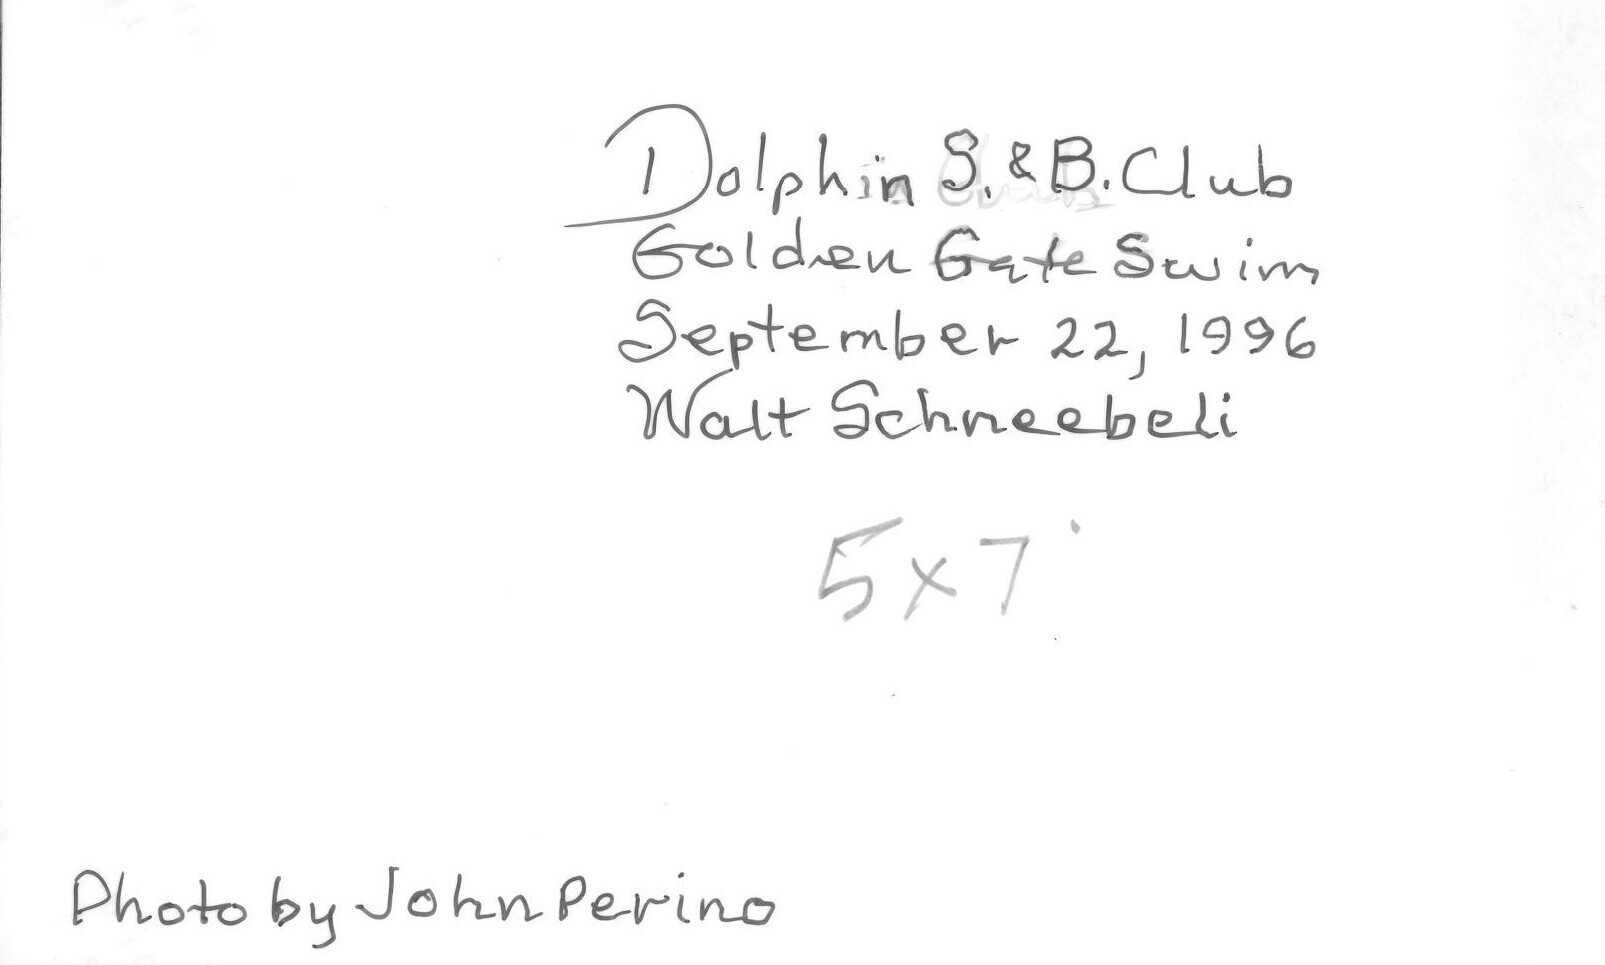 Dolphin S. & B. Club
Golden Gate Swim
September 22, 1996
Walt Schneebeli
5x7
Photo by John Perino